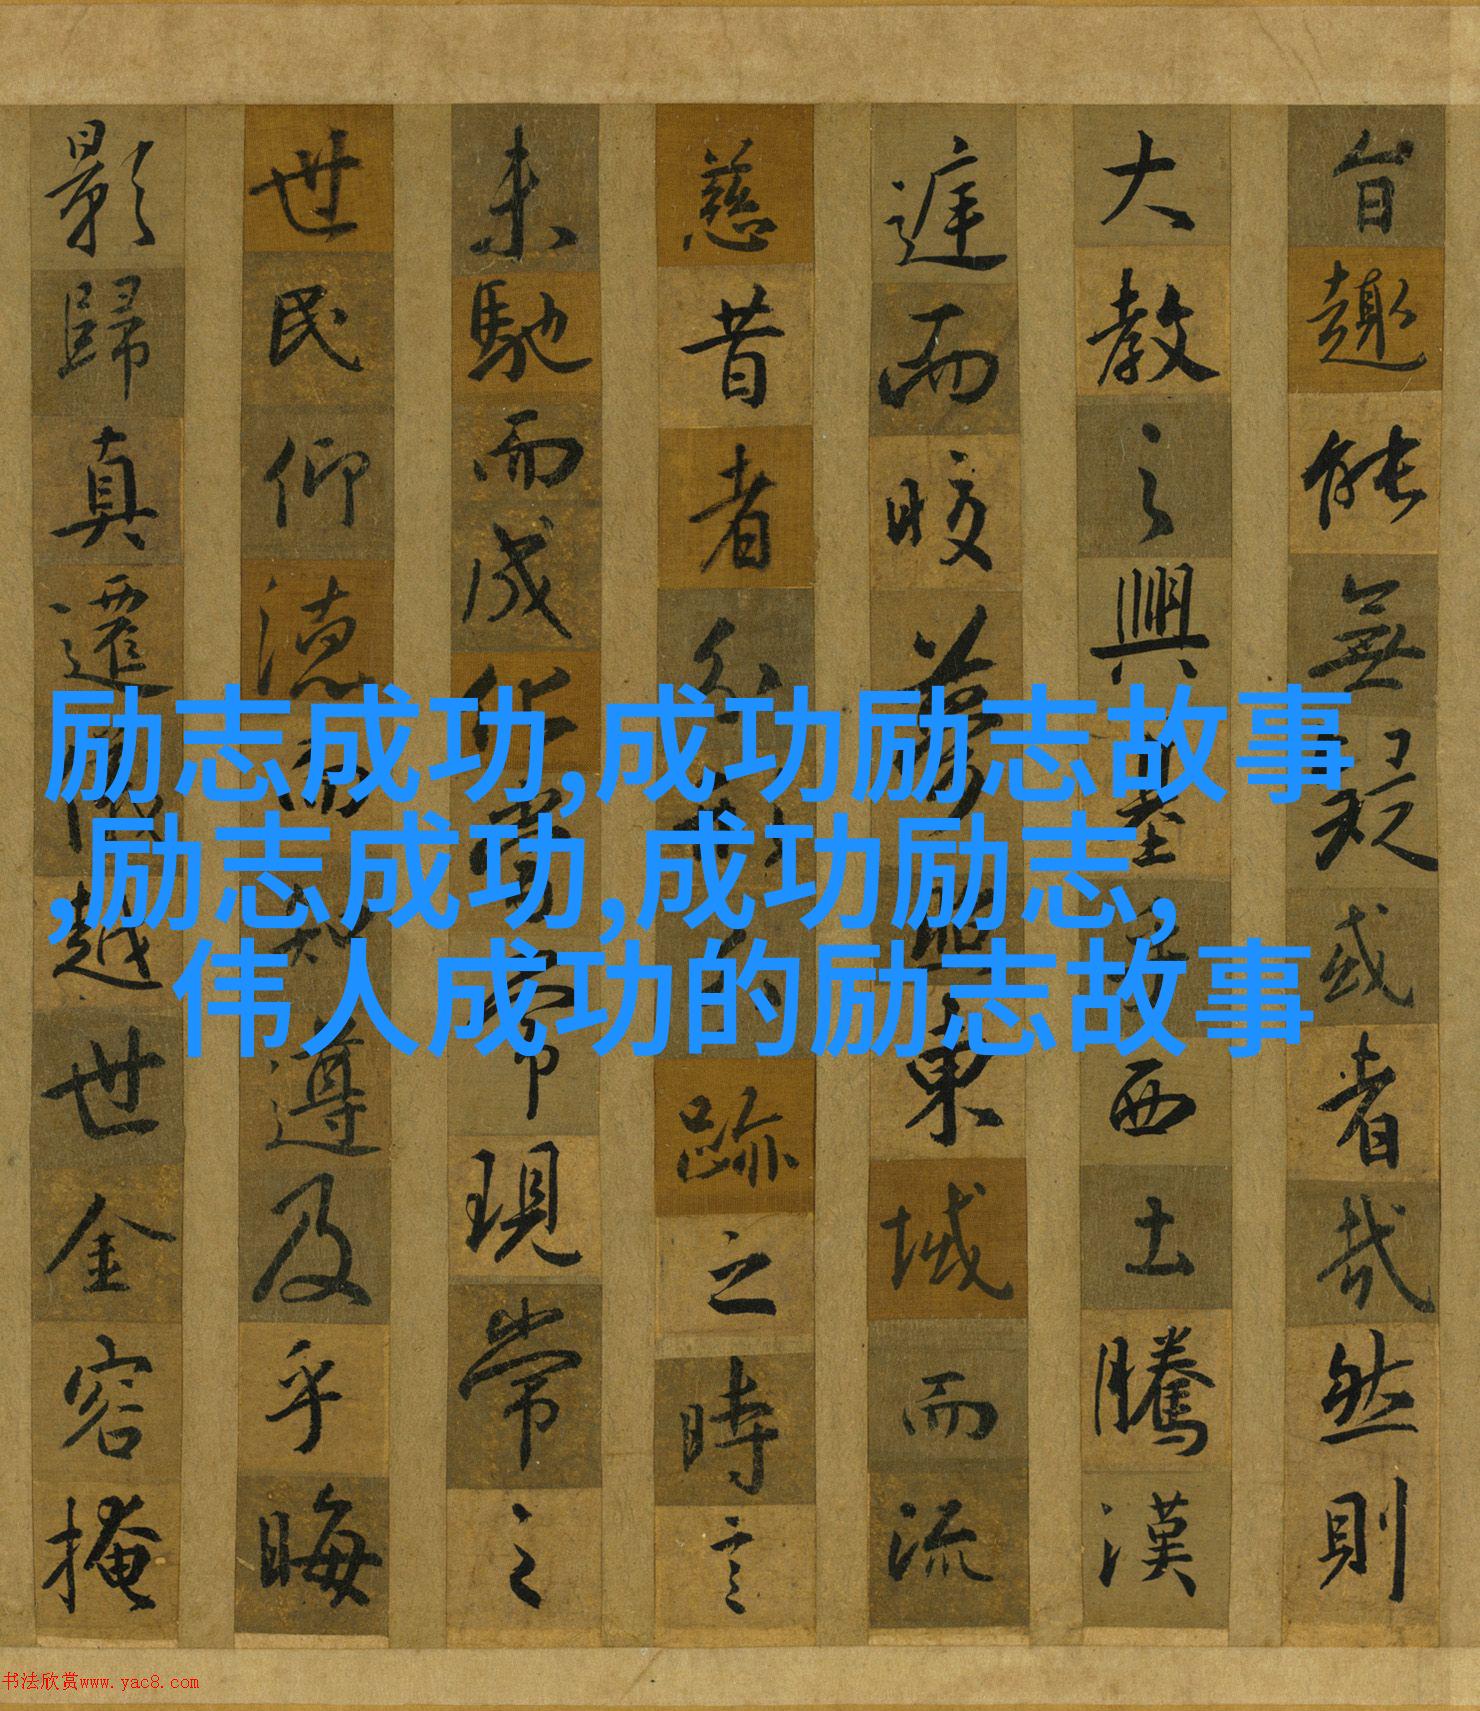 旨趣能無疑或者哉然則
大教之興基乎西土騰漢
庭而皎夢照東域而流
慈昔者分形分跡之時言
未馳而成化當常現常之
世民仰德而知遵及乎晦
影歸真遷儀越世金容掩
励志成功,成功励志故事
,励志成功,成功励志,
伟人成功的励志故事
书法欣赏www.yac8.com